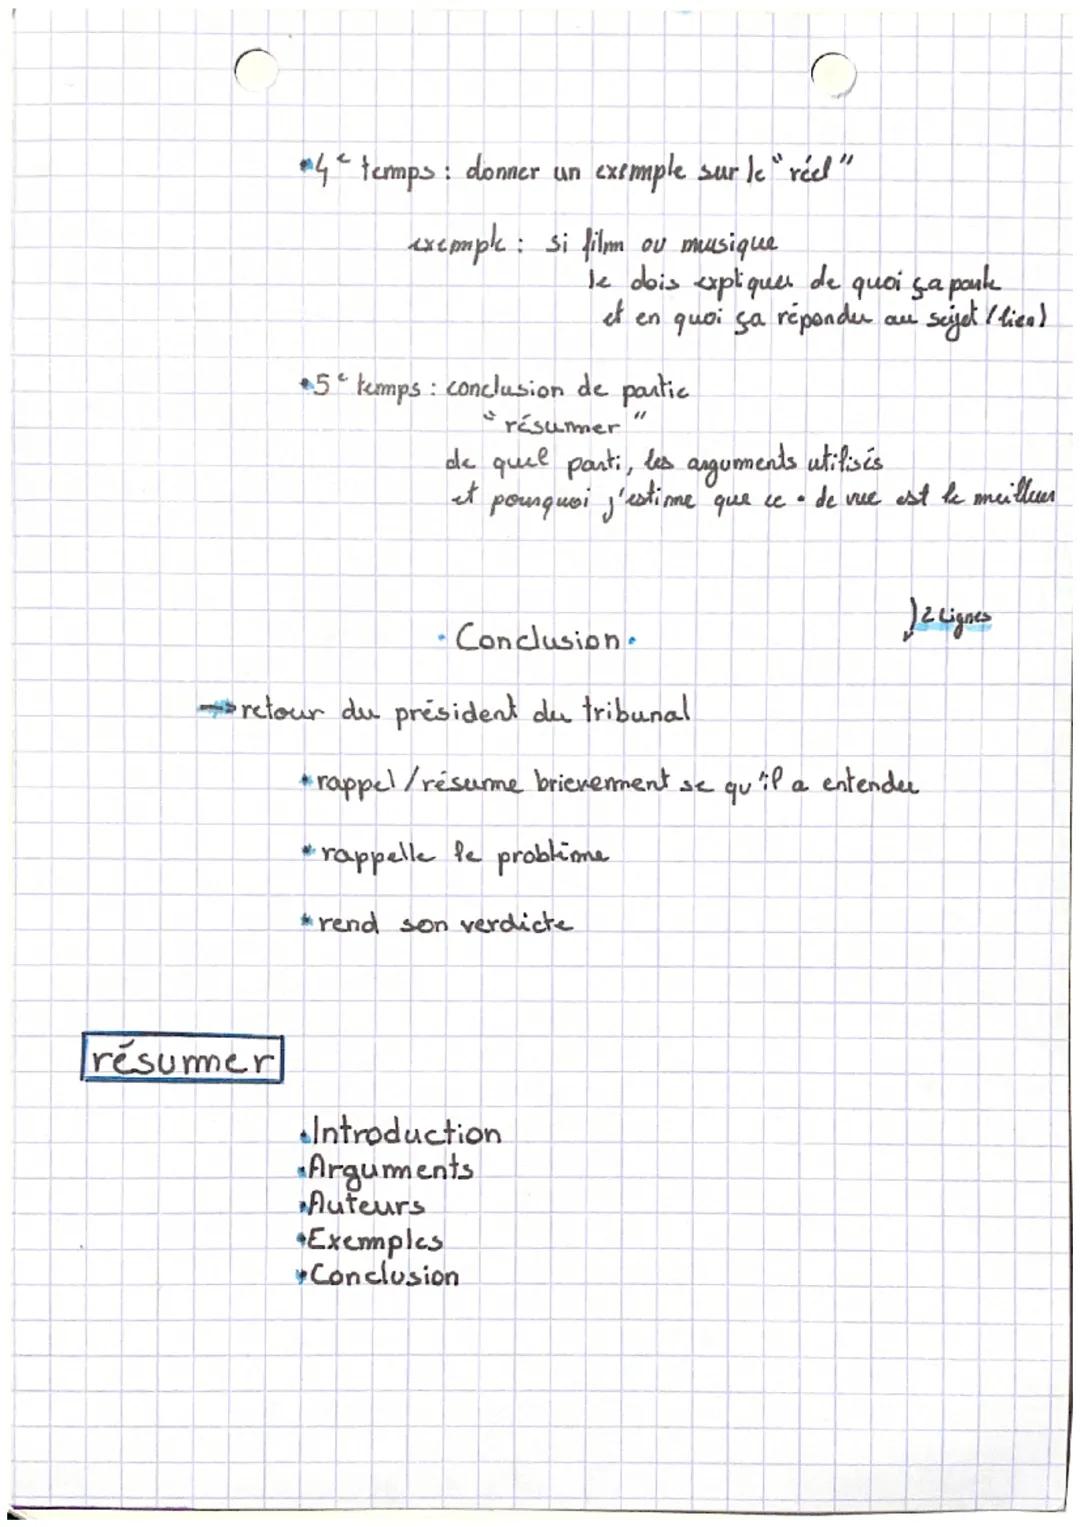 • 4e temps : donner un exemple sur le "réel"
exemple : si film ou musique
je dois expliquer de quoi ça parle
et en quoi ça répondu au sujet (lien)
• 5e temps : conclusion de partie
"résumer"
de quel parti, les arguments utilisés
et pourquoi j'estime que ce • de vue est le meilleur
2 lignes
• Conclusion •
→ retour du président du tribunal
* rappel / résume brievement se qu'il a entendu
* rappelle le problème
* rend son verdicte
résumer
• Introduction
• Arguments
• Auteurs
• Exemples
• Conclusion